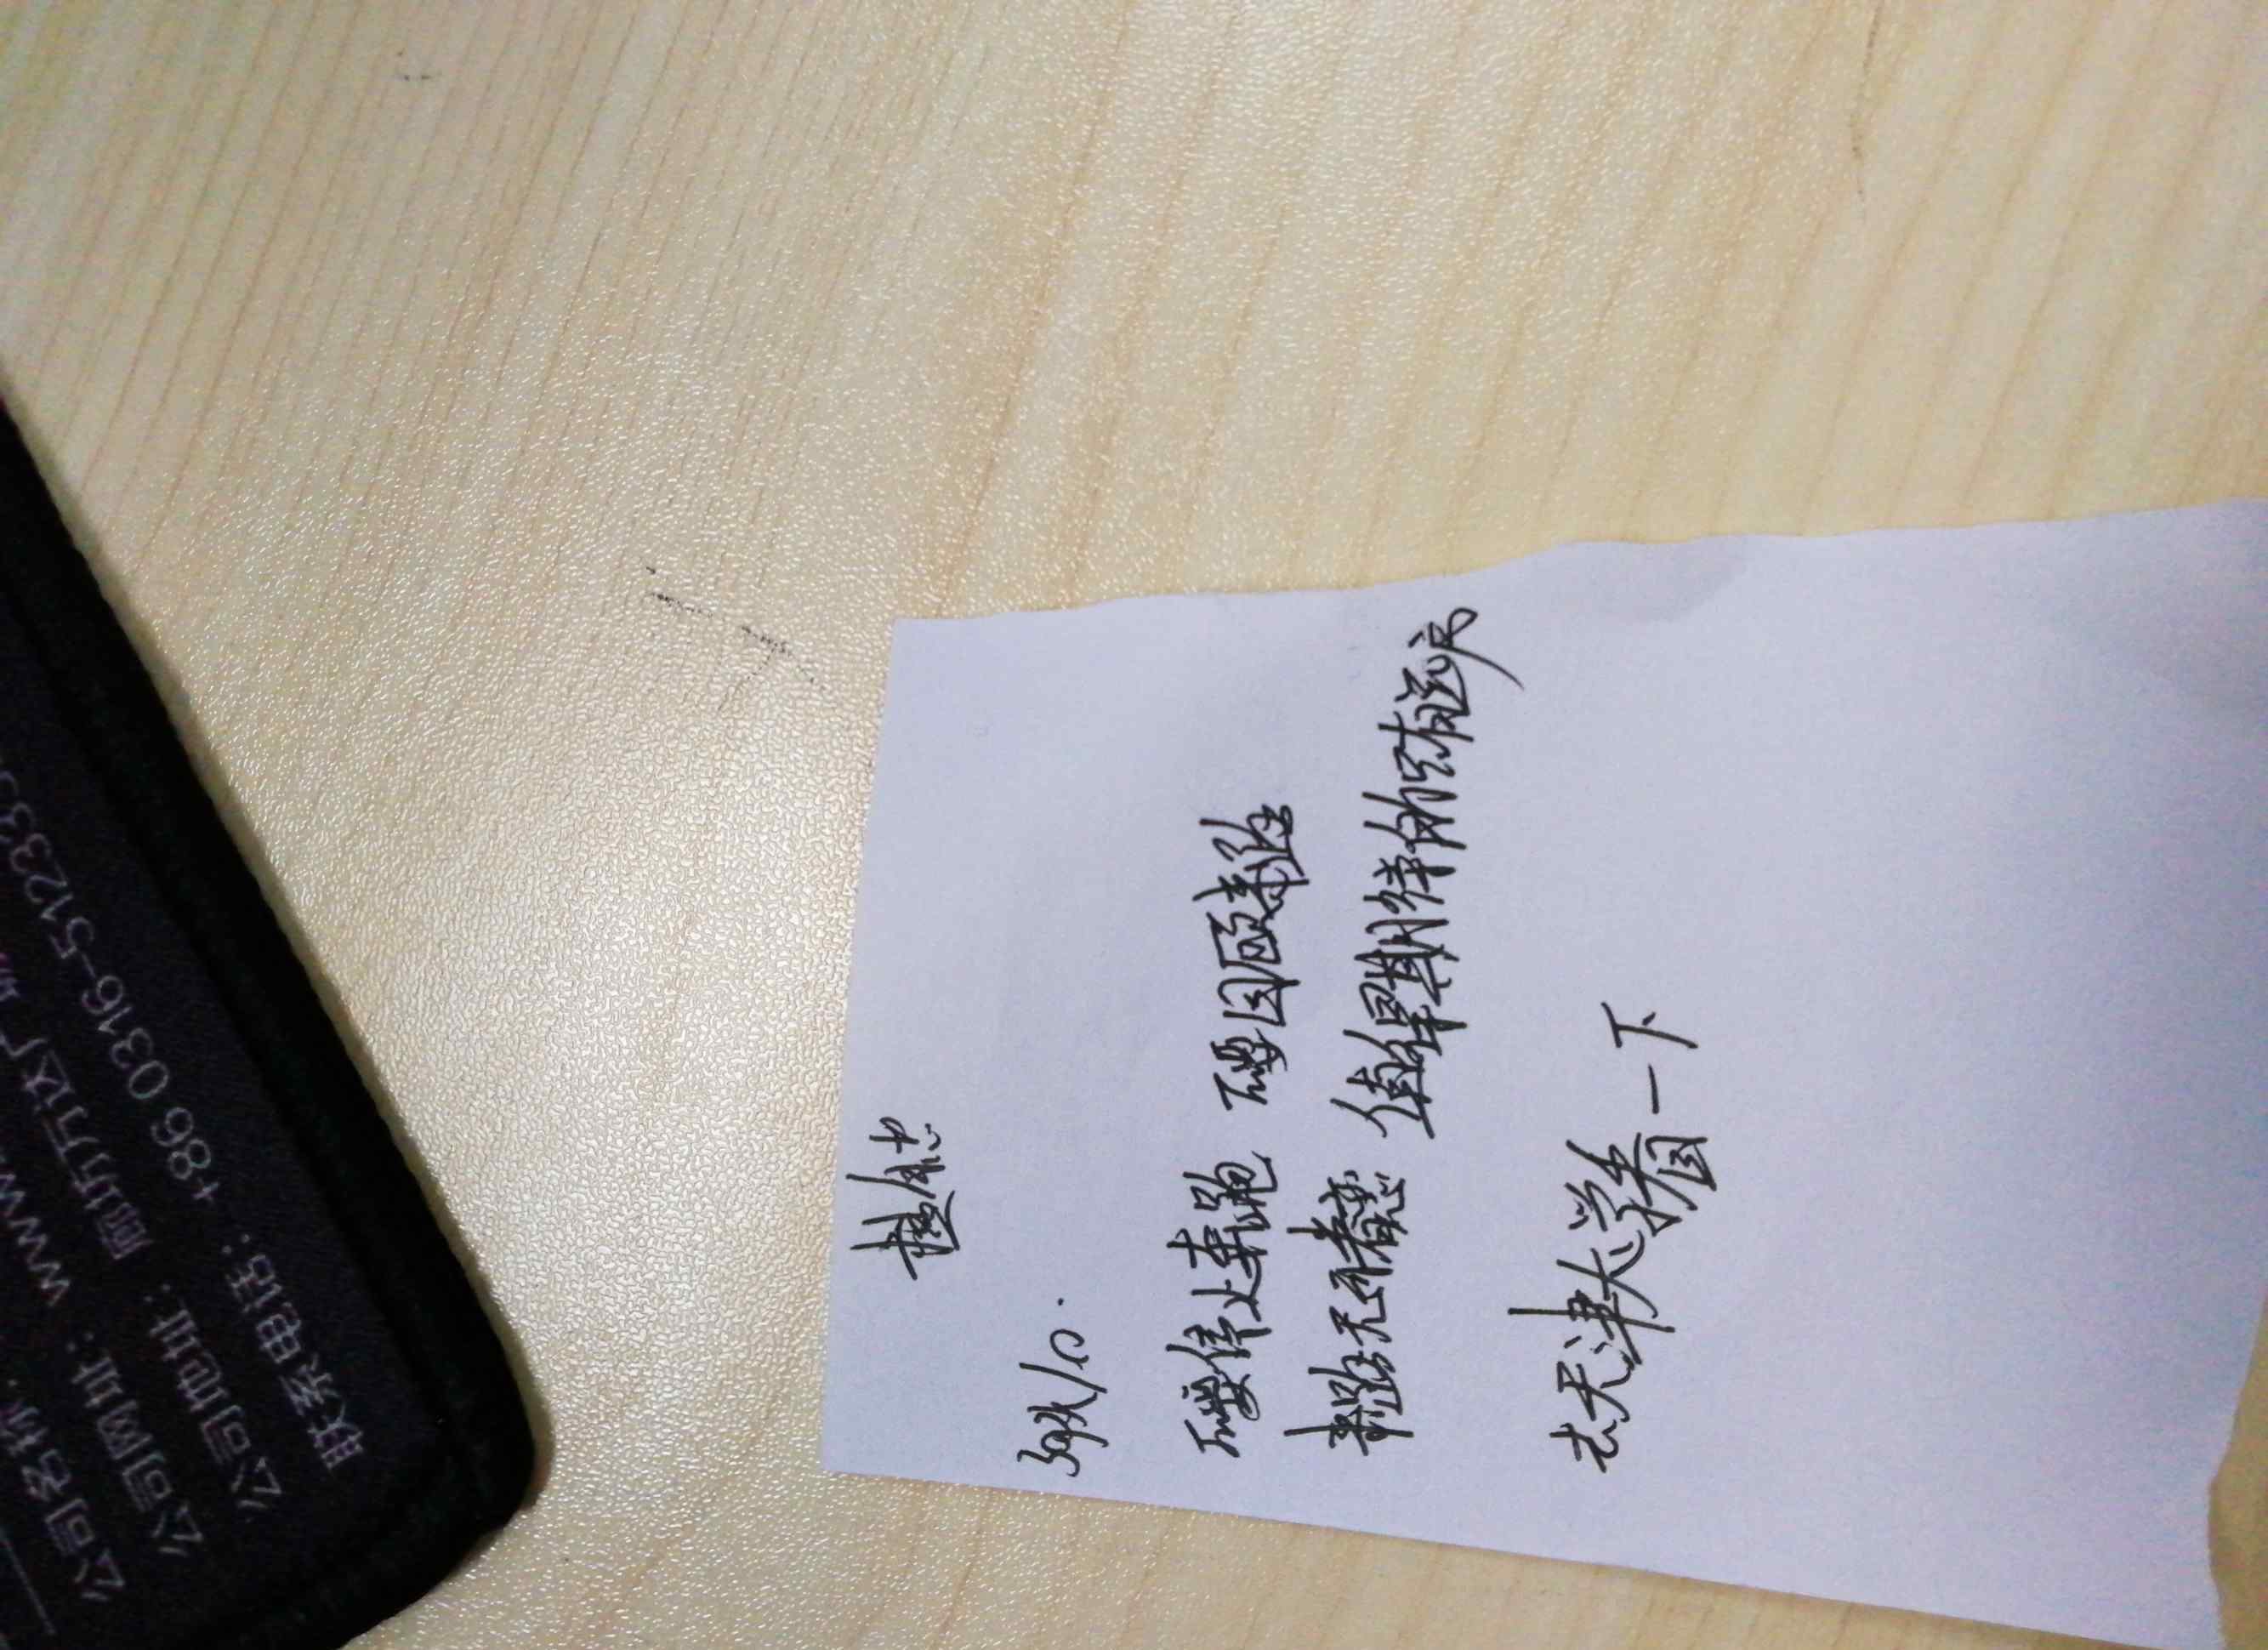 不要停止奔跑 不要回顾来路
来路无可眷恋 值得期待的只有远方
去天津大学看一下
公司名称:
公司网址: www.
公司地址: 廊坊万达广
联系电话: +86 0316-5123